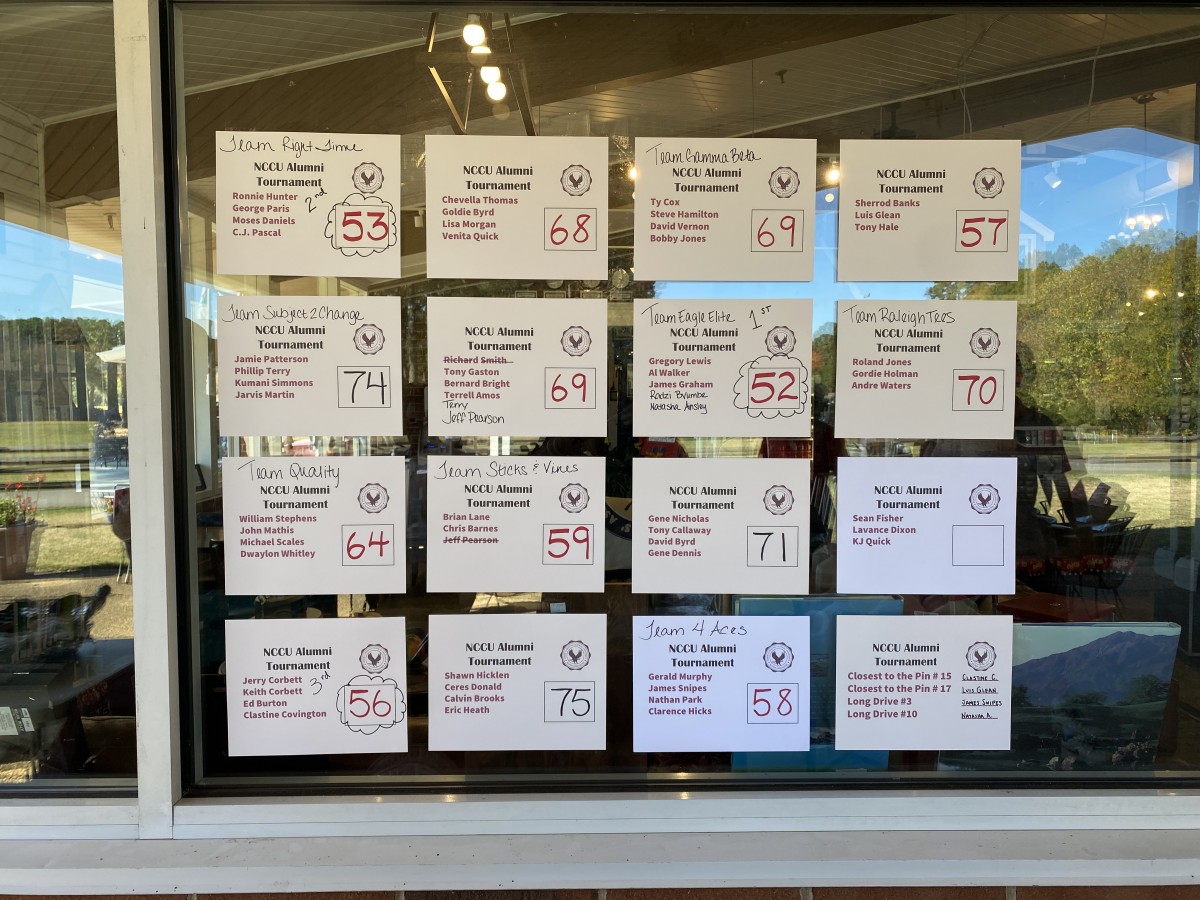 Team Right Time
NCCU Alumni
Tournament
Ronnie Hunter
George Paris
Moses Daniels
C.J. Pascal
2nd
53
NCCU Alumni
Tournament
Chevella Thomas
Goldie Byrd
Lisa Morgan
Venita Quick
68
Team Gamma Beta
NCCU Alumni
Tournament
Ty Cox
Steve Hamilton
David Vernon
Bobby Jones
69
NCCU Alumni
Tournament
Sherrod Banks
Luis Glean
Tony Hale
57
Team Subject 2 Change
NCCU Alumni
Tournament
Jamie Patterson
Phillip Terry
Kumani Simmons
Jarvis Martin
74
NCCU Alumni
Tournament
Richard Smith
Tony Gaston
Bernard Bright
Terrell Amos
Terry
Jeff Pearson
69
Team Eagle Elite 1ST
NCCU Alumni
Tournament
Gregory Lewis
Al Walker
James Graham
Radzi Bvumbe
Natasha Ansley
52
Team Raleigh Tees
NCCU Alumni
Tournament
Roland Jones
Gordie Holman
Andre Waters
70
Team Quality
NCCU Alumni
Tournament
William Stephens
John Mathis
Michael Scales
Dwaylon Whitley
64
Team Sticks & Vines
NCCU Alumni
Tournament
Brian Lane
Chris Barnes
Jeff Pearson
59
NCCU Alumni
Tournament
Gene Nicholas
Tony Callaway
David Byrd
Gene Dennis
71
NCCU Alumni
Tournament
Sean Fisher
Lavance Dixon
KJ Quick
NCCU Alumni
Tournament
Jerry Corbett
Keith Corbett
Ed Burton
Clastine Covington
3rd
56
NCCU Alumni
Tournament
Shawn Hicklen
Ceres Donald
Calvin Brooks
Eric Heath
75
Team 4 Aces
NCCU Alumni
Tournament
Gerald Murphy
James Snipes
Nathan Park
Clarence Hicks
58
NCCU Alumni
Tournament
Closest to the Pin # 15 CLASTINE C.
Closest to the Pin # 17 LUIS GLEAN
Long Drive #3 JAMES SNIPES
Long Drive #10 NATASHA A.